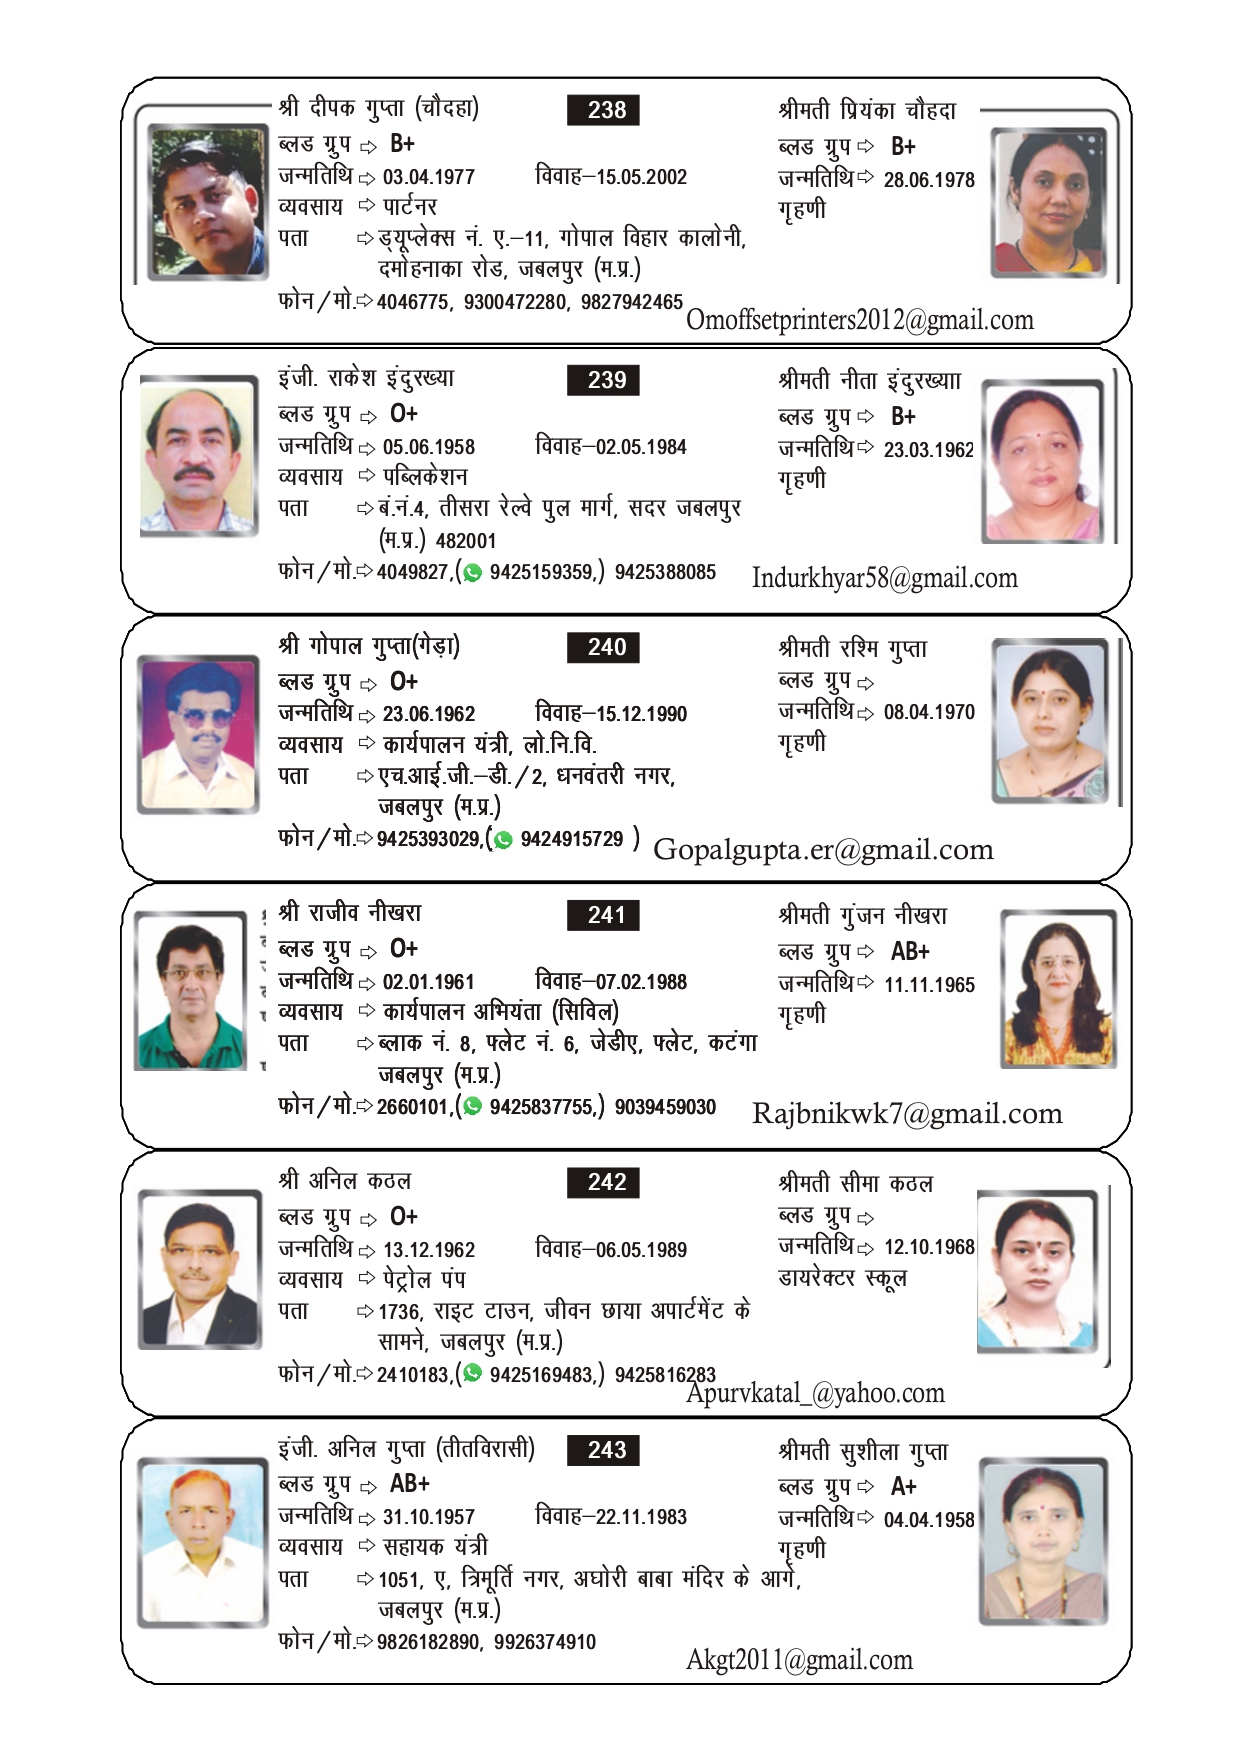 श्री दीपक गुप्ता (चौदहा)
238
श्रीमती प्रियंका चौहदा
ब्लड ग्रुप ⇨ B+
ब्लड ग्रुप ⇨ B+
जन्मतिथि ⇨ 03.04.1977 विवाह–15.05.2002
जन्मतिथि ⇨ 28.06.1978
व्यवसाय ⇨ पार्टनर
गृहणी
पता ⇨ ड्यूप्लेक्स नं. ए.–11, गोपाल विहार कालोनी,
दमोहनाका रोड, जबलपुर (म.प्र.)
फोन/मो.⇨ 4046775, 9300472280, 9827942465
Omoffsetprinters2012@gmail.com
इंजी. राकेश इंदुरख्या
239
श्रीमती नीता इंदुरख्याा
ब्लड ग्रुप ⇨ O+
ब्लड ग्रुप ⇨ B+
जन्मतिथि ⇨ 05.06.1958 विवाह–02.05.1984
जन्मतिथि ⇨ 23.03.1962
व्यवसाय ⇨ पब्लिकेशन
गृहणी
पता ⇨ बं.नं.4, तीसरा रेल्वे पुल मार्ग, सदर जबलपुर
(म.प्र.) 482001
फोन/मो.⇨ 4049827,( 9425159359,) 9425388085
Indurkhyar58@gmail.com
श्री गोपाल गुप्ता(गेड़ा)
240
श्रीमती रश्मि गुप्ता
ब्लड ग्रुप ⇨ O+
ब्लड ग्रुप ⇨
जन्मतिथि ⇨ 23.06.1962 विवाह–15.12.1990
जन्मतिथि ⇨ 08.04.1970
व्यवसाय ⇨ कार्यपालन यंत्री, लो.नि.वि.
गृहणी
पता ⇨ एच.आई.जी.–डी./2, धनवंतरी नगर,
जबलपुर (म.प्र.)
फोन/मो.⇨ 9425393029,( 9424915729 )
Gopalgupta.er@gmail.com
श्री राजीव नीखरा
241
श्रीमती गुंजन नीखरा
ब्लड ग्रुप ⇨ O+
ब्लड ग्रुप ⇨ AB+
जन्मतिथि ⇨ 02.01.1961 विवाह–07.02.1988
जन्मतिथि ⇨ 11.11.1965
व्यवसाय ⇨ कार्यपालन अभियंता (सिविल)
गृहणी
पता ⇨ ब्लाक नं. 8, फ्लेट नं. 6, जेडीए, फ्लेट, कटंगा
जबलपुर (म.प्र.)
फोन/मो.⇨ 2660101,( 9425837755,) 9039459030
Rajbnikwk7@gmail.com
श्री अनिल कठल
242
श्रीमती सीमा कठल
ब्लड ग्रुप ⇨ O+
ब्लड ग्रुप ⇨
जन्मतिथि ⇨ 13.12.1962 विवाह–06.05.1989
जन्मतिथि ⇨ 12.10.1968
व्यवसाय ⇨ पेट्रोल पंप
डायरेक्टर स्कूल
पता ⇨ 1736, राइट टाउन, जीवन छाया अपार्टमेंट के
सामने, जबलपुर (म.प्र.)
फोन/मो.⇨ 2410183,( 9425169483,) 9425816283
Apurvkatal_@yahoo.com
इंजी. अनिल गुप्ता (तीतविरासी)
243
श्रीमती सुशीला गुप्ता
ब्लड ग्रुप ⇨ AB+
ब्लड ग्रुप ⇨ A+
जन्मतिथि ⇨ 31.10.1957 विवाह–22.11.1983
जन्मतिथि ⇨ 04.04.1958
व्यवसाय ⇨ सहायक यंत्री
गृहणी
पता ⇨ 1051, ए, त्रिमूर्ति नगर, अघोरी बाबा मंदिर के आगे,
जबलपुर (म.प्र.)
फोन/मो.⇨ 9826182890, 9926374910
Akgt2011@gmail.com